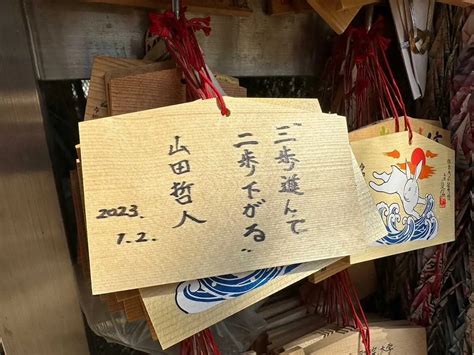 「三歩進んで
二歩下がる」
山田哲人
2023.
1.2.